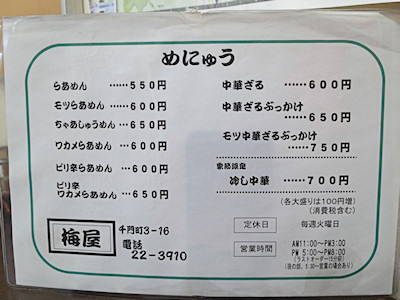 めにゅう
らあめん ……５５０円
モツらあめん ……６００円
ちゃあしゅうめん …６５０円
ワカメらあめん …６００円
ピリ辛らあめん …６００円
ピリ辛
ワカメらあめん …６５０円
中華ざる ……６００円
中華ざるぶっかけ
……６５０円
モツ中華ざるぶっかけ
……７５０円
冷し中華 ……７００円
（各大盛りは100円増）
（消費税含む）
梅屋
千門町3-16
電話
22-3910
定休日 毎週火曜日
営業時間 AM11:00～PM3:00
PM 5:00～PM8:00
（ラストオーダー15分前）